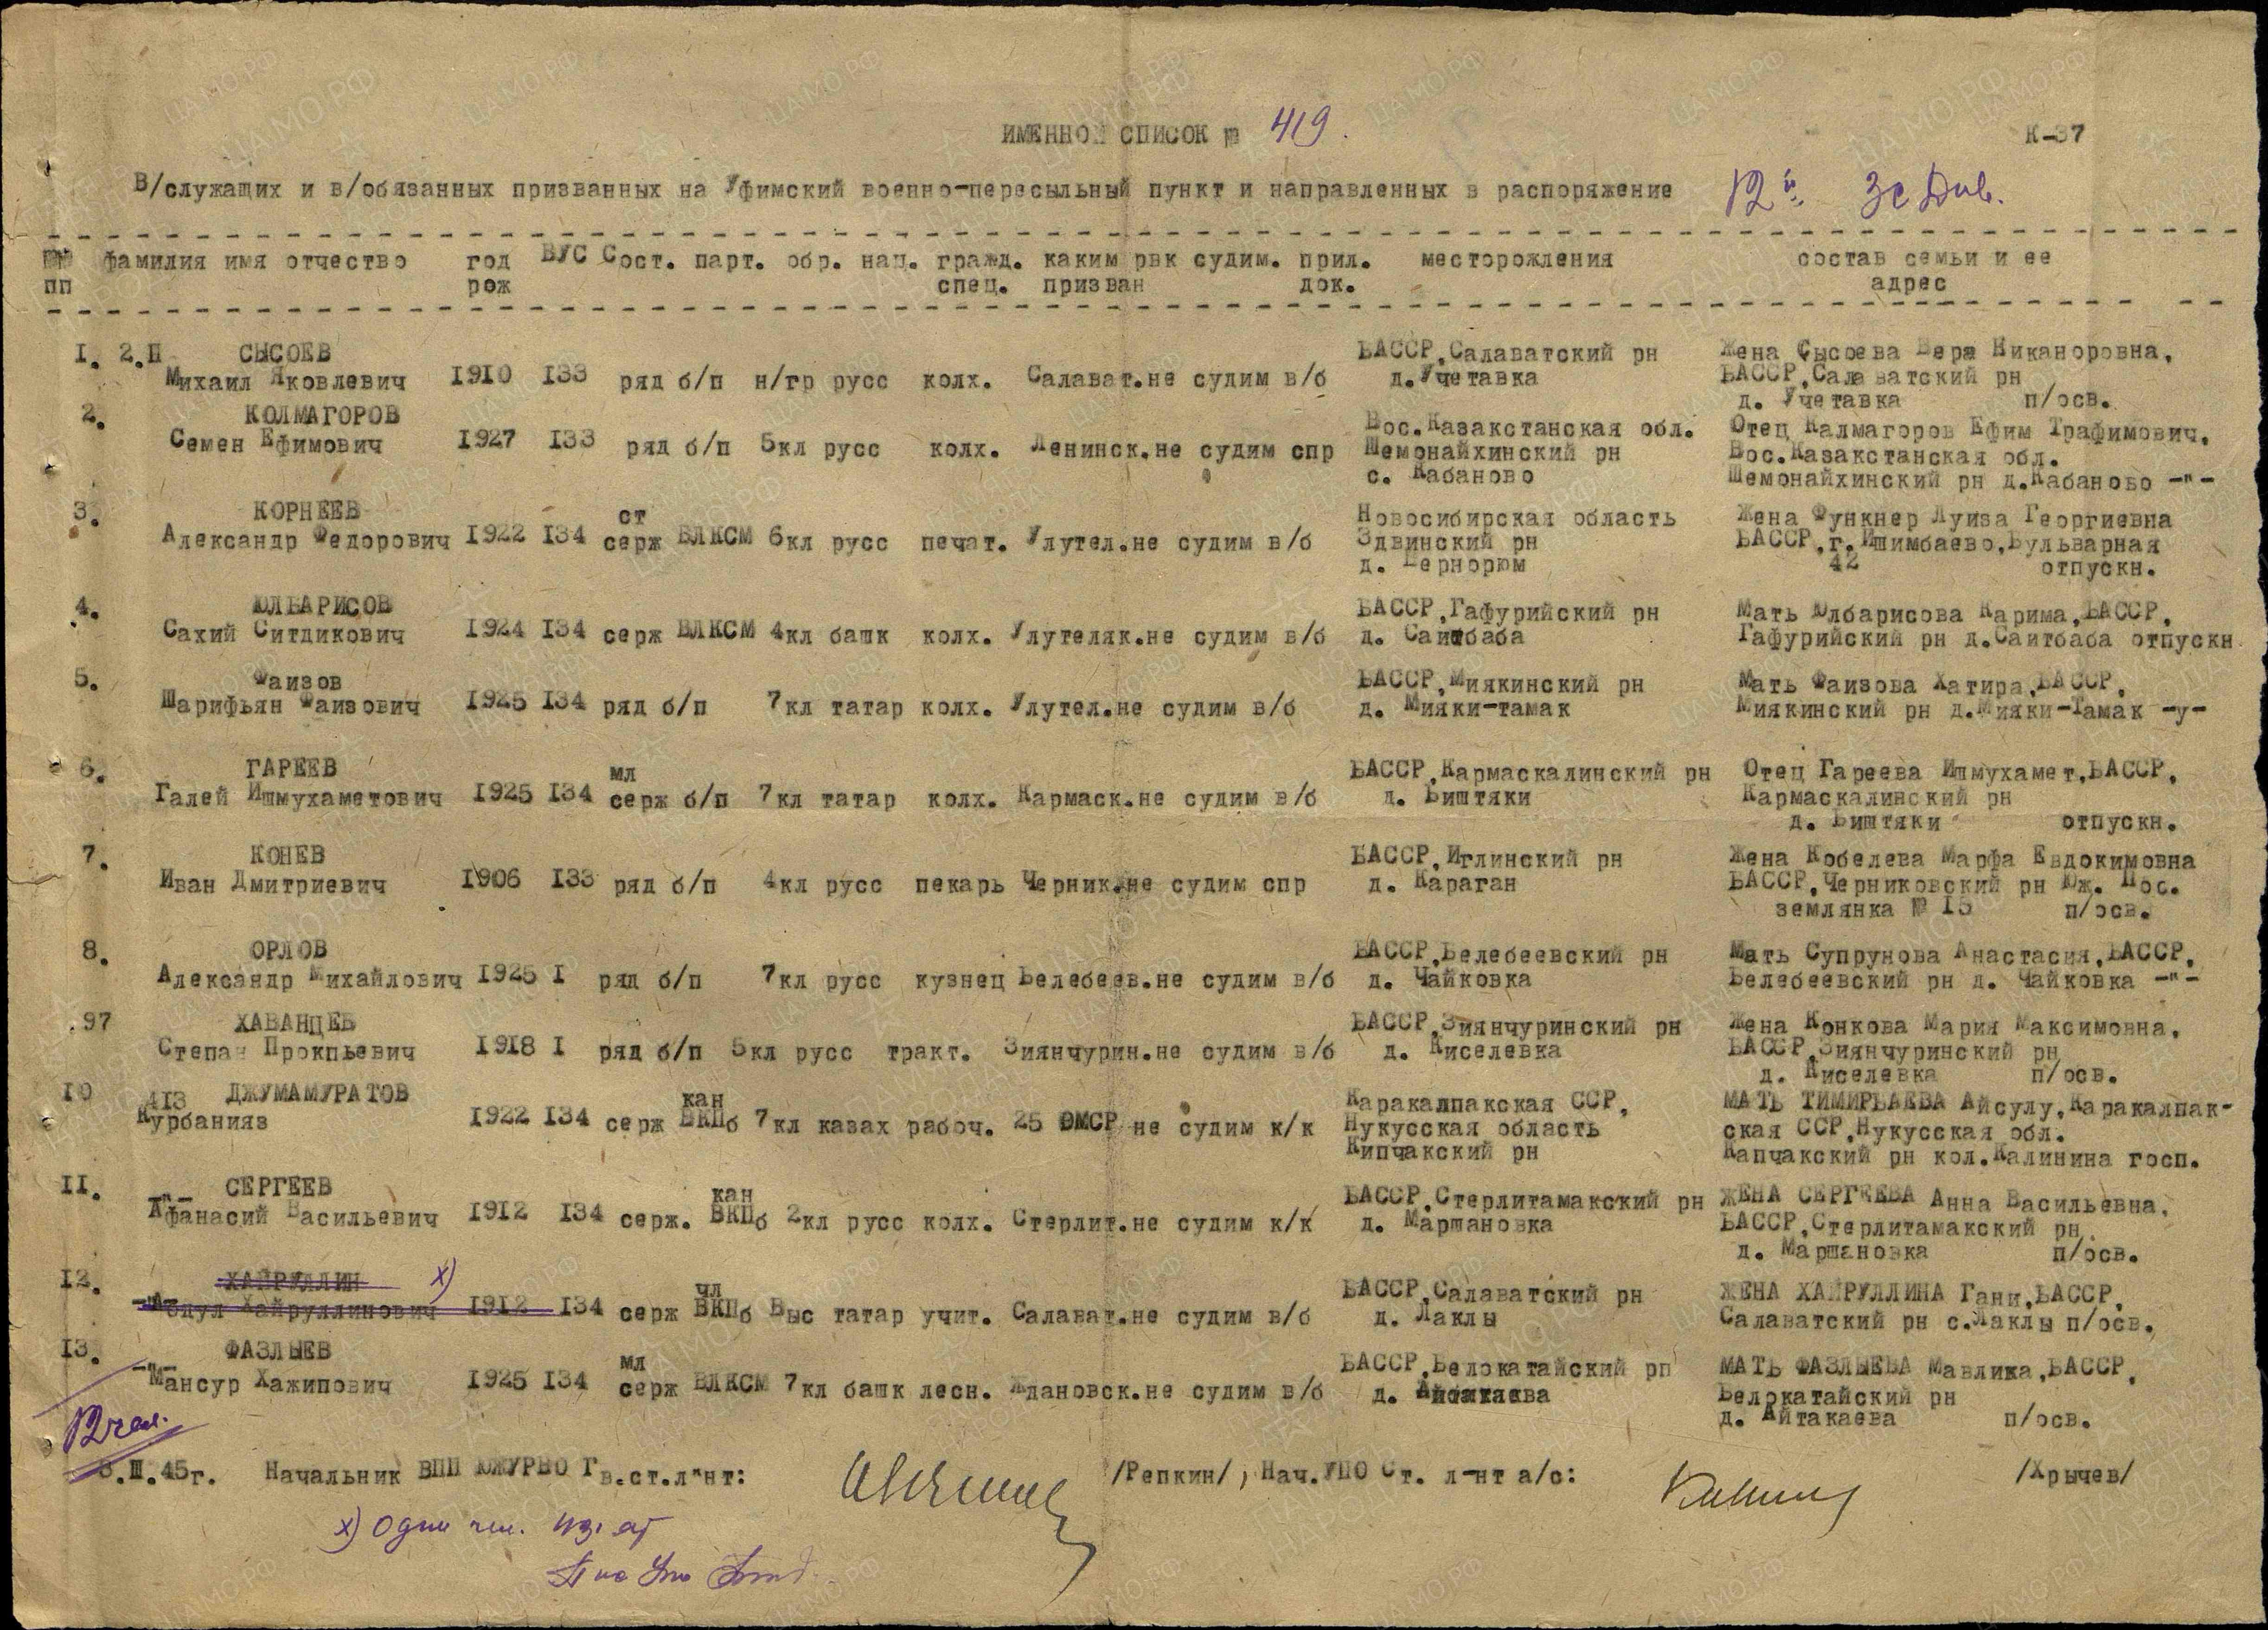 ИМЕННОЙ СПИСОК № 419. К-37
В/служащих и в/обязанных призванных на Уфимский военно-пересыльный пункт и направленных в распоряжение 12й Зс Див.
№№ фамилия имя отчество год ВУС Сост. парт. обр. нац. гражд. каким рвк судим. прил. месторождения состав семьи и ее
пп рож спец. призван док. адрес
I. 2.П СЫСОЕВ БАССР,Салаватский рн Жена Сысоева Вера Никаноровна,
Михаил Яковлевич I9I0 I33 ряд б/п н/гр русс колх. Салават.не судим в/б д.Учетавка БАССР,Салаватский рн
д. Учетавка п/осв.
2. КОЛМАГОРОВ Вос.Казакстанская обл. Отец Калмагоров Ефим Трафимович,
Семен Ефимович I927 I33 ряд б/п 5кл русс колх. Ленинск.не судим спр Шемонайхинский рн Вос.Казакстанская обл.
с. Кабаново Шемонайхинский рн д.Кабаново -"-
3. КОРНЕЕВ ст Новосибирская область Жена Функнер Луиза Георгиевна
Александр Федорович I922 I34 серж ВЛКСМ 6кл русс печат. Улутел.не судим в/б Здвинский рн БАССР,г.Ишимбаево,Бульварная
д. Верноюм 42 отпускн.
4. ЮЛБАРИСОВ БАССР,Гафурийский рн Мать Юлбарисова Карима,БАССР,
Сахий Ситдикович I924 I34 серж ВЛКСМ 4кл башк колх. Улутеляк.не судим в/б д. Саитбаба Гафурийский рн д.Саитбаба отпускн
5. Фаизов БАССР,Миякинский рн Мать Фаизова Хатира,БАССР,
Шарифьян Фаизович I925 I34 ряд б/п 7кл татар колх. Улутел.не судим в/б д. Мияки-тамак Миякинский рн д.Мияки-Тамак -у-
6. ГАРЕЕВ мл БАССР,Кармаскалинский рн Отец Гареева Ишмухамет,БАССР,
Галей Ишмухаметович I925 I34 серж б/п 7кл татар колх. Кармаск.не судим в/б д. Биштяки Кармаскалинский рн
д. Биштяки отпускн.
7. КОНЕВ БАССР,Иглинский рн Жена Кобелева Марфа Евдокимовна
Иван Дмитриевич I906 I33 ряд б/п 4кл русс пекарь Черник.не судим спр д. Караган БАССР,Черниковский рн Юж. Пос.
землянка № I5 п/осв.
8. ОРЛОВ БАССР,Белебеевский рн Мать Супрунова Анастасия,БАССР,
Александр Михайлович I925 I ряд б/п 7кл русс кузнец Белебеев.не судим в/б д. Чайковка Белебеевский рн д. Чайковка -"-
.97 ХАВАНЦЕВ БАССР,Зиянчуринский рн Жена Конкова Мария Максимовна,
Степан Прокпьевич I9I8 I ряд б/п 5кл русс тракт. Зиянчурин.не судим в/б д. Киселевка БАССР,Зиянчуринский рн
д. Киселевка п/осв.
I0 4I3 ДЖУМАМУРАТОВ кан Каракалпакская ССР, МАТЬ ТИМИРБАЕВА Айсулу,Каракалпак-
Курбанияз I922 I34 серж ВКПб 7кл казах рабоч. 25 ОМСР не судим к/к Нукусская область ская ССР,Нукусская обл.
Кипчакский рн Капчакский рн кол.Калинина госп.
II. -"- СЕРГЕЕВ кан БАССР,Стерлитамакский рн ЖЕНА СЕРГЕЕВА Анна Васильевна,
Афанасий Васильевич I9I2 I34 серж. ВКПб 2кл русс колх. Стерлит.не судим к/к д. Маршановка БАССР,Стерлитамакский рн
д. Маршановка п/осв.
I2. ХАЙРУЛЛИН х) чл БАССР,Салаватский рн ЖЕНА ХАЙРУЛЛИНА Гани,БАССР,
-"- Абдул Хайруллинович I9I2 I34 серж ВКПб Выс татар учит. Салават.не судим в/б д. Лаклы Салаватский рн с.Лаклы п/осв.
I3. ФАЗЛЫЕВ мл БАССР,Белокатайский рп МАТЬ ФАЗЛЫЕВА Мавлика,БАССР,
-"- Мансур Хажипович I925 I34 серж ВЛКСМ 7кл башк лесн. Ждановск.не судим в/б д. Белокатайский рн
д. Айтакаева п/осв.
12 чел.
8.Ш.45г. Начальник ВПП ЮЖУРВО Гв.ст.л"нт: /Репкин/, Нач.УПО Ст. л-нт а/с: /Хрычев/
х) Один чел.